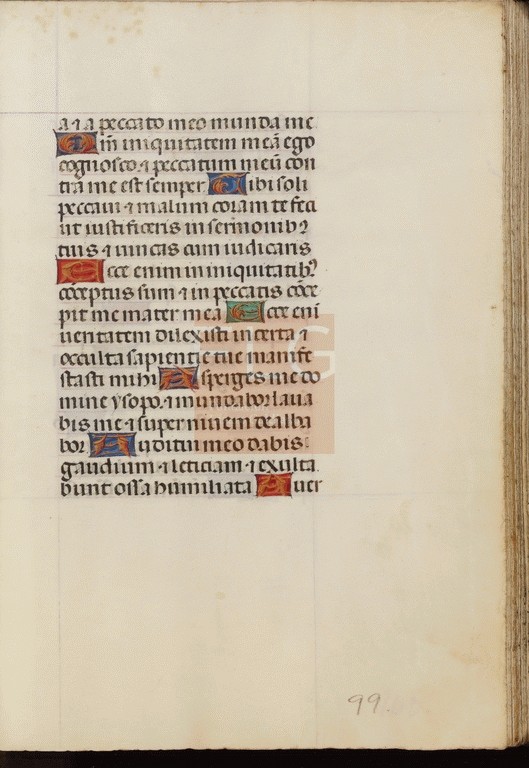 a ⁊ a peccato meo munda me
Qm̄ iniquitatem meā ego
cognosco ⁊ peccatum meū con
tra me est semper Tibi soli
peccaui ⁊ malum coram te feci
ut iustificeris in sermonibꝰ
tuis ⁊ uincas cum iudicaris
Ecce enim in iniquitatibꝰ
cōceptus sum ⁊ in peccatis cōce
pit me mater mea Ecce enī
ueritatem dilexisti incerta ⁊
occulta sapientie tue manife
stasti mihi Asperges me do
mine ysopo ⁊ mundabor laua
bis me ⁊ super niuem dealba
bor Auditui meo dabis
gaudium ⁊ leticiam ⁊ exulta
bunt ossa humiliata Auer
99.